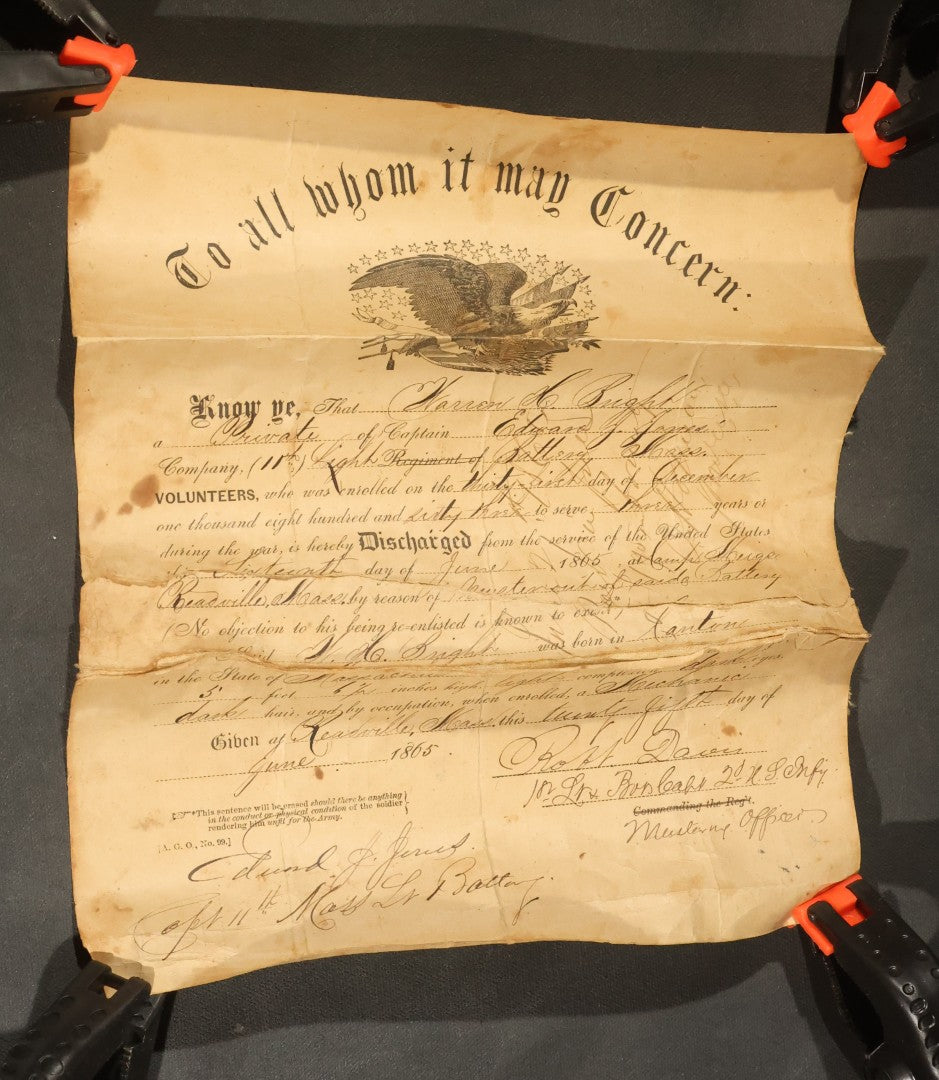 To all whom it may Concern:
Know ye, That Warren H. Bright
a Private of Captain Edward J. Jones'
Company, (11th) Light Regiment of Battery, Mass.
VOLUNTEERS, who was enrolled on the thirty-first day of December
one thousand eight hundred and sixty three to serve three years or
during the war, is hereby Discharged from the service of the United States
this Sixteenth day of June 1865, at Camp Meigs
Readville, Mass. by reason of Muster out of said Battery
(No objection to his being re-enlisted is known to exist.*)
Said W. H. Bright was born in Canton
in the State of Massachusetts
5 feet inches high, light complexion, eyes,
dark hair, and by occupation, when enrolled, a Mechanic
Given at Readville, Mass. this day of
June 1865.
Robt Davis
1st Lt & Bvt Capt 2d U. S. Infy
Commanding the Reg't.
Mustering Officer
*This sentence will be erased should there be anything
in the conduct or physical condition of the soldier
rendering him unfit for the Army.
[A. G. O., No. 99.]
Edward J. Jones.
Capt 11th Mass Lt Battery.